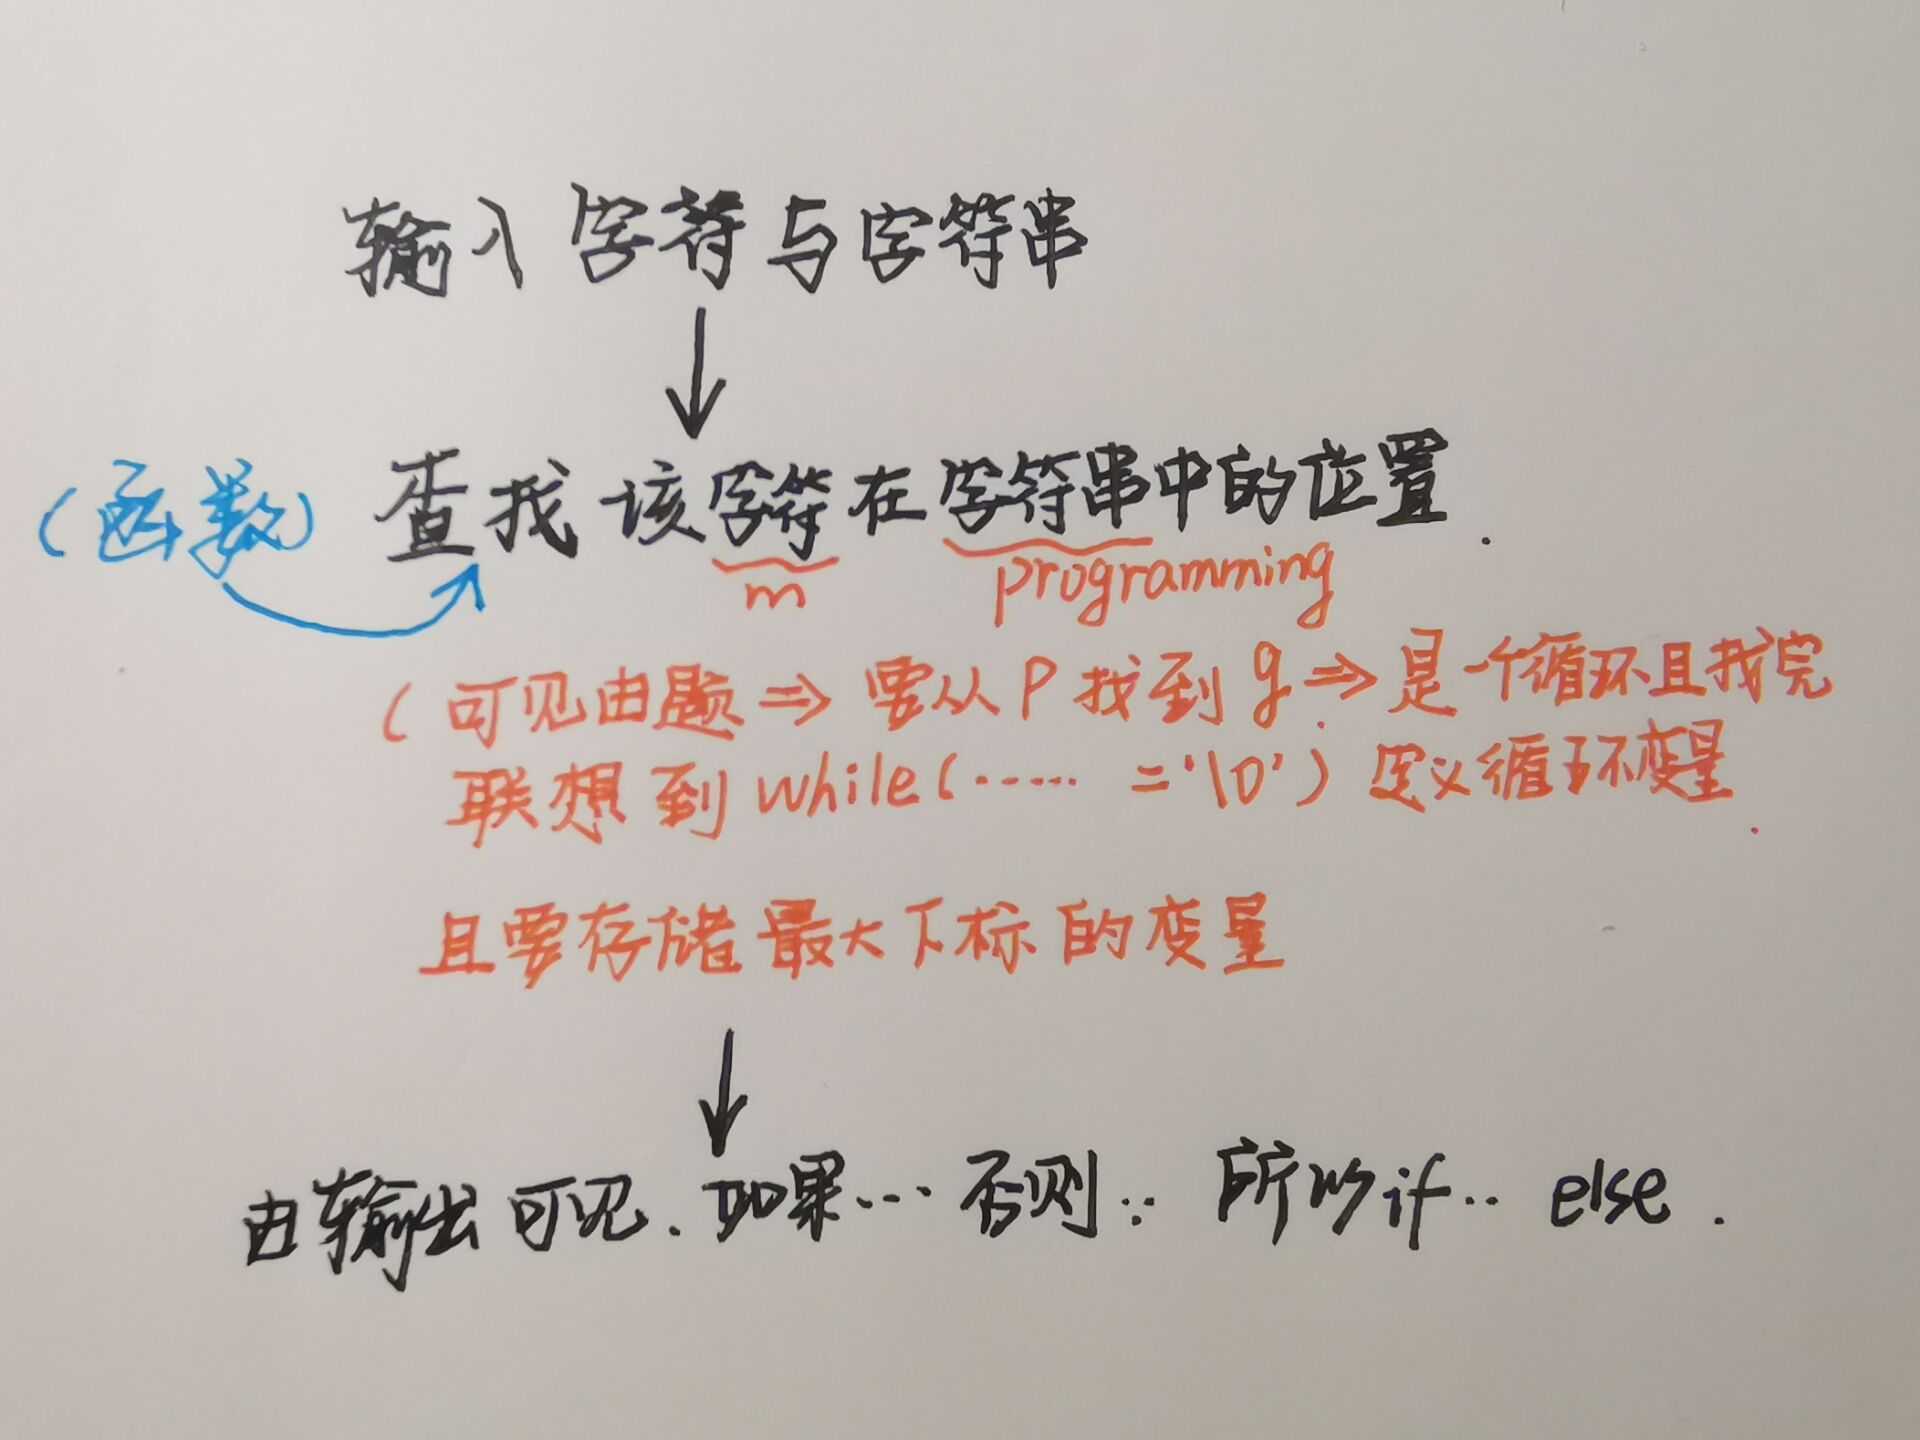 输入字符与字符串
(函数) 查找该字符在字符串中的位置.
m programming
(可见由题⇒要从P找到g.⇒是一个循环且找完
联想到while(······ ='\0')定义循环变量.
且要存储最大下标的变量
由输出可见.如果···否则.. 所以if·· else.